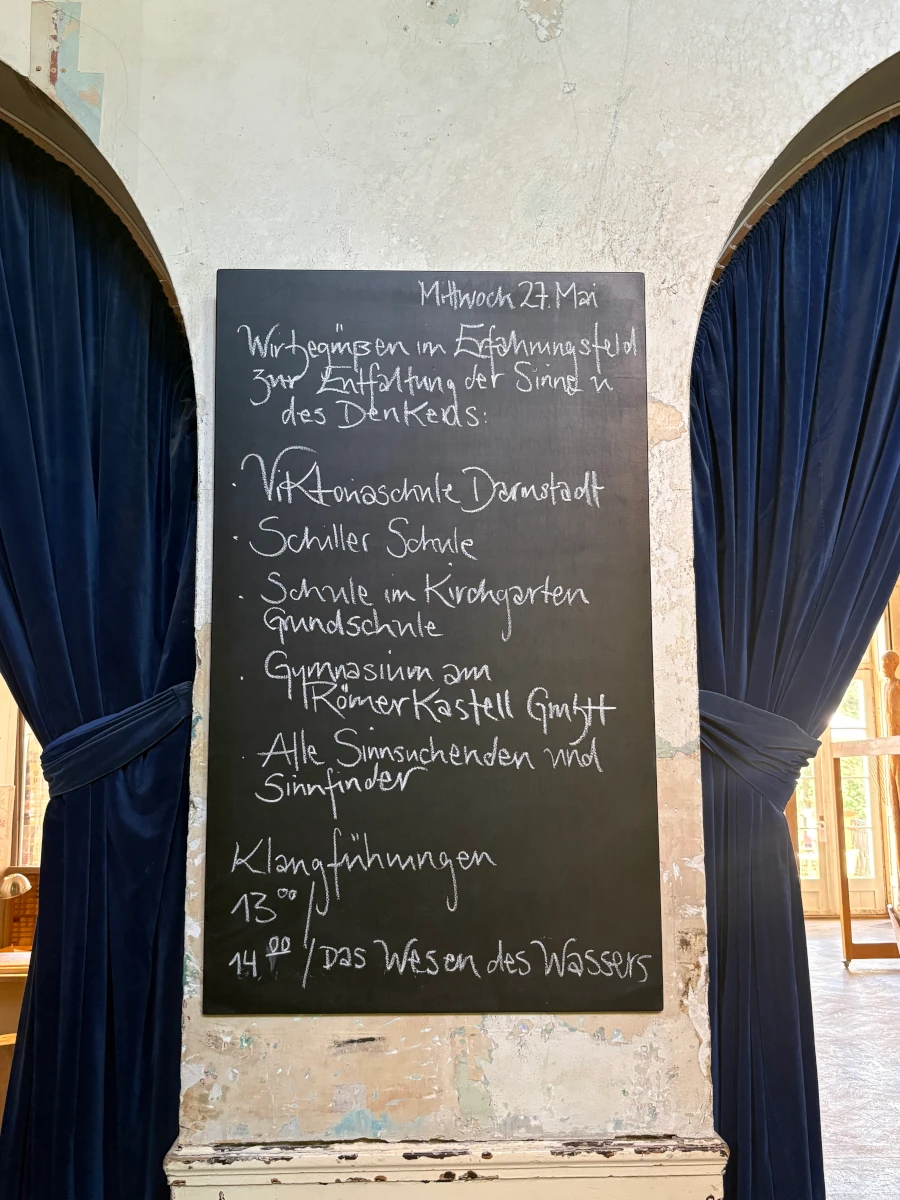 Mittwoch 27. Mai
Wir begrüßen im Erfahrungsfeld
zur Entfaltung der Sinne u
des Denkens:
· Viktoriaschule Darmstadt
· Schiller Schule
· Schule im Kirchgarten
Grundschule
· Gymnasium am
Römerkastell GmbH
· Alle Sinnsuchenden und
Sinnfinder
Klangführungen
13⁰⁰ /
14⁰⁰ / Das Wesen des Wassers